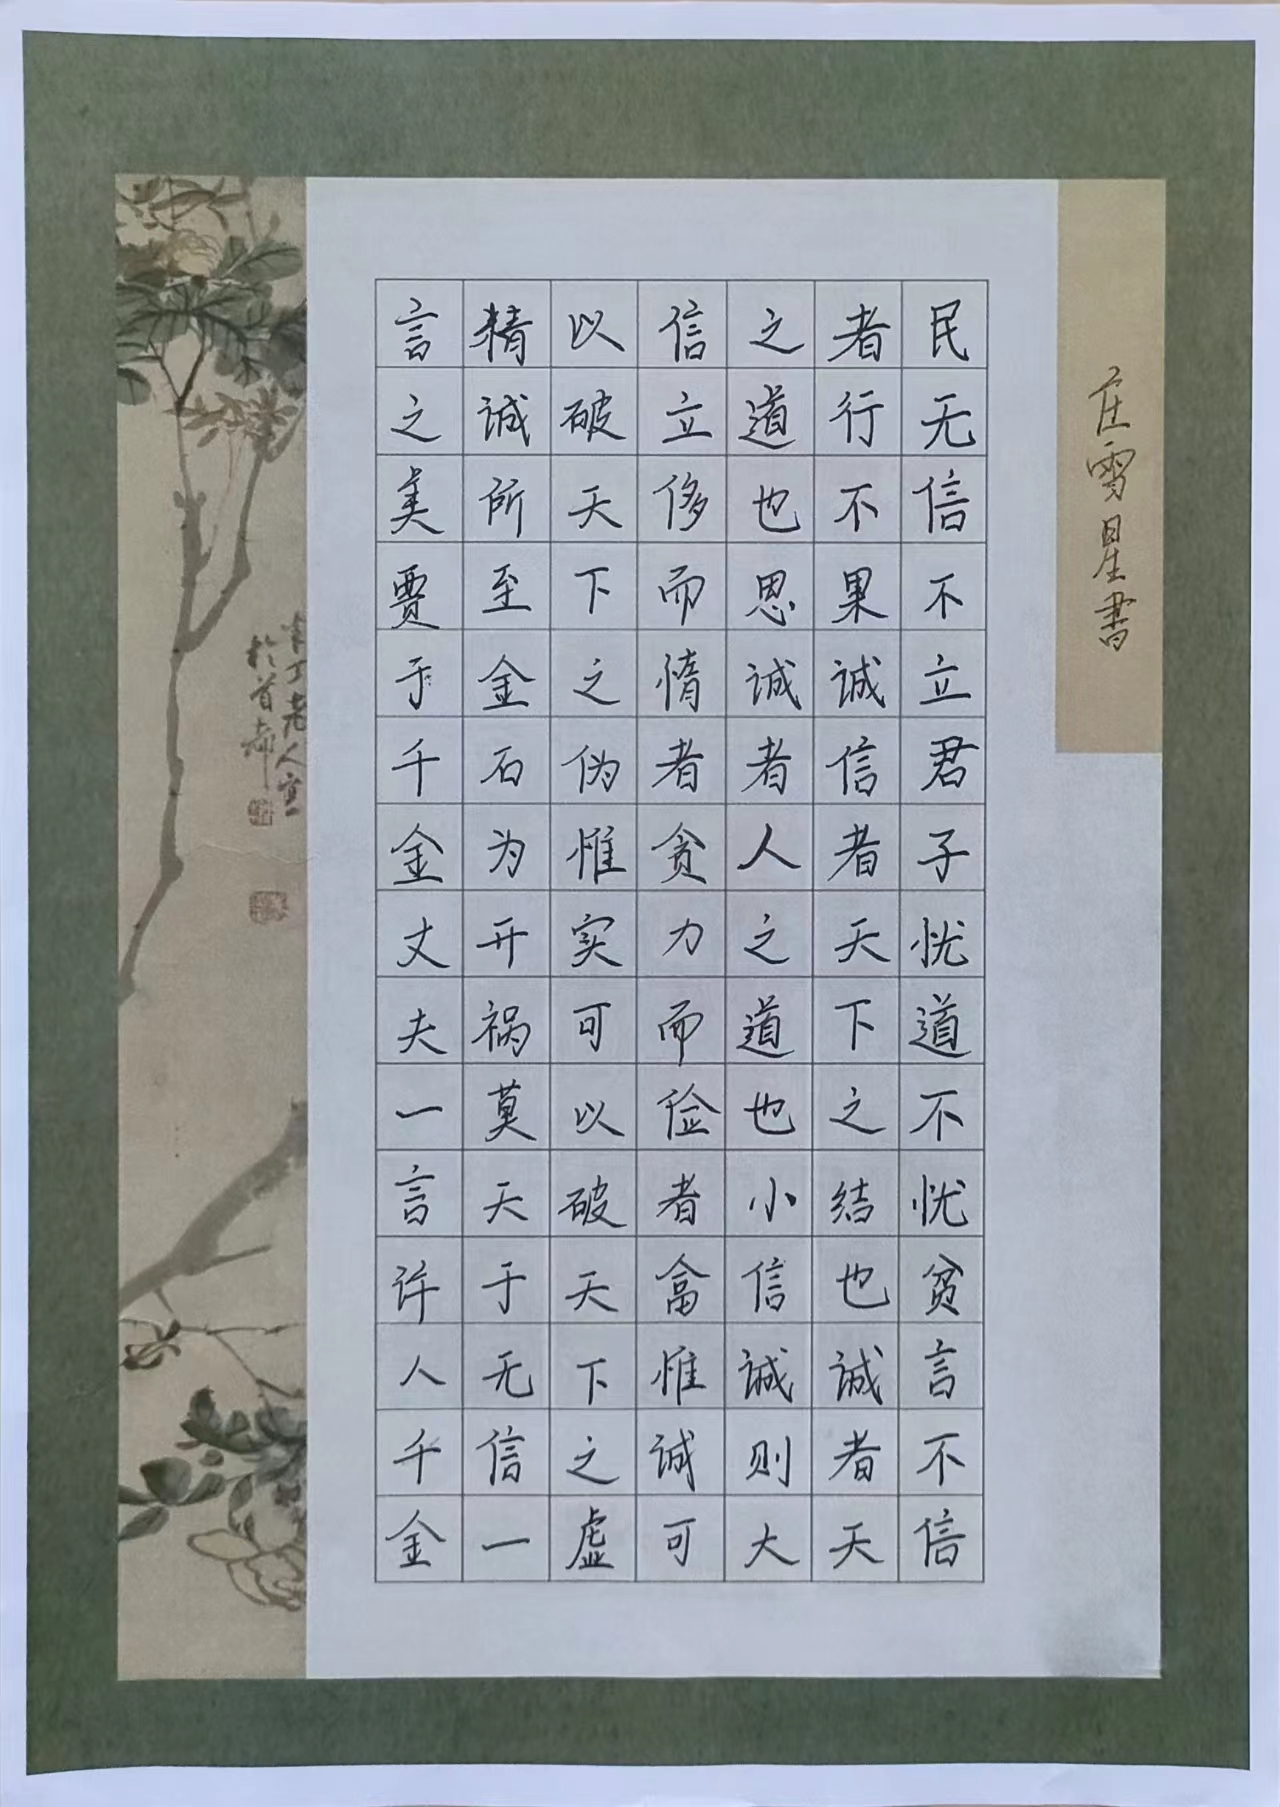 庄雪星書
民无信不立君子忧道不忧贫言不信
者行不果诚信者天下之结也诚者天
之道也思诚者人之道也小信诚则大
信立侈而惰者贫力而俭者富惟诚可
以破天下之伪惟实可以破天下之虚
精诚所至金石为开祸莫天于无信一
言之美贾于千金丈夫一言许人千金
丁老人
於首都